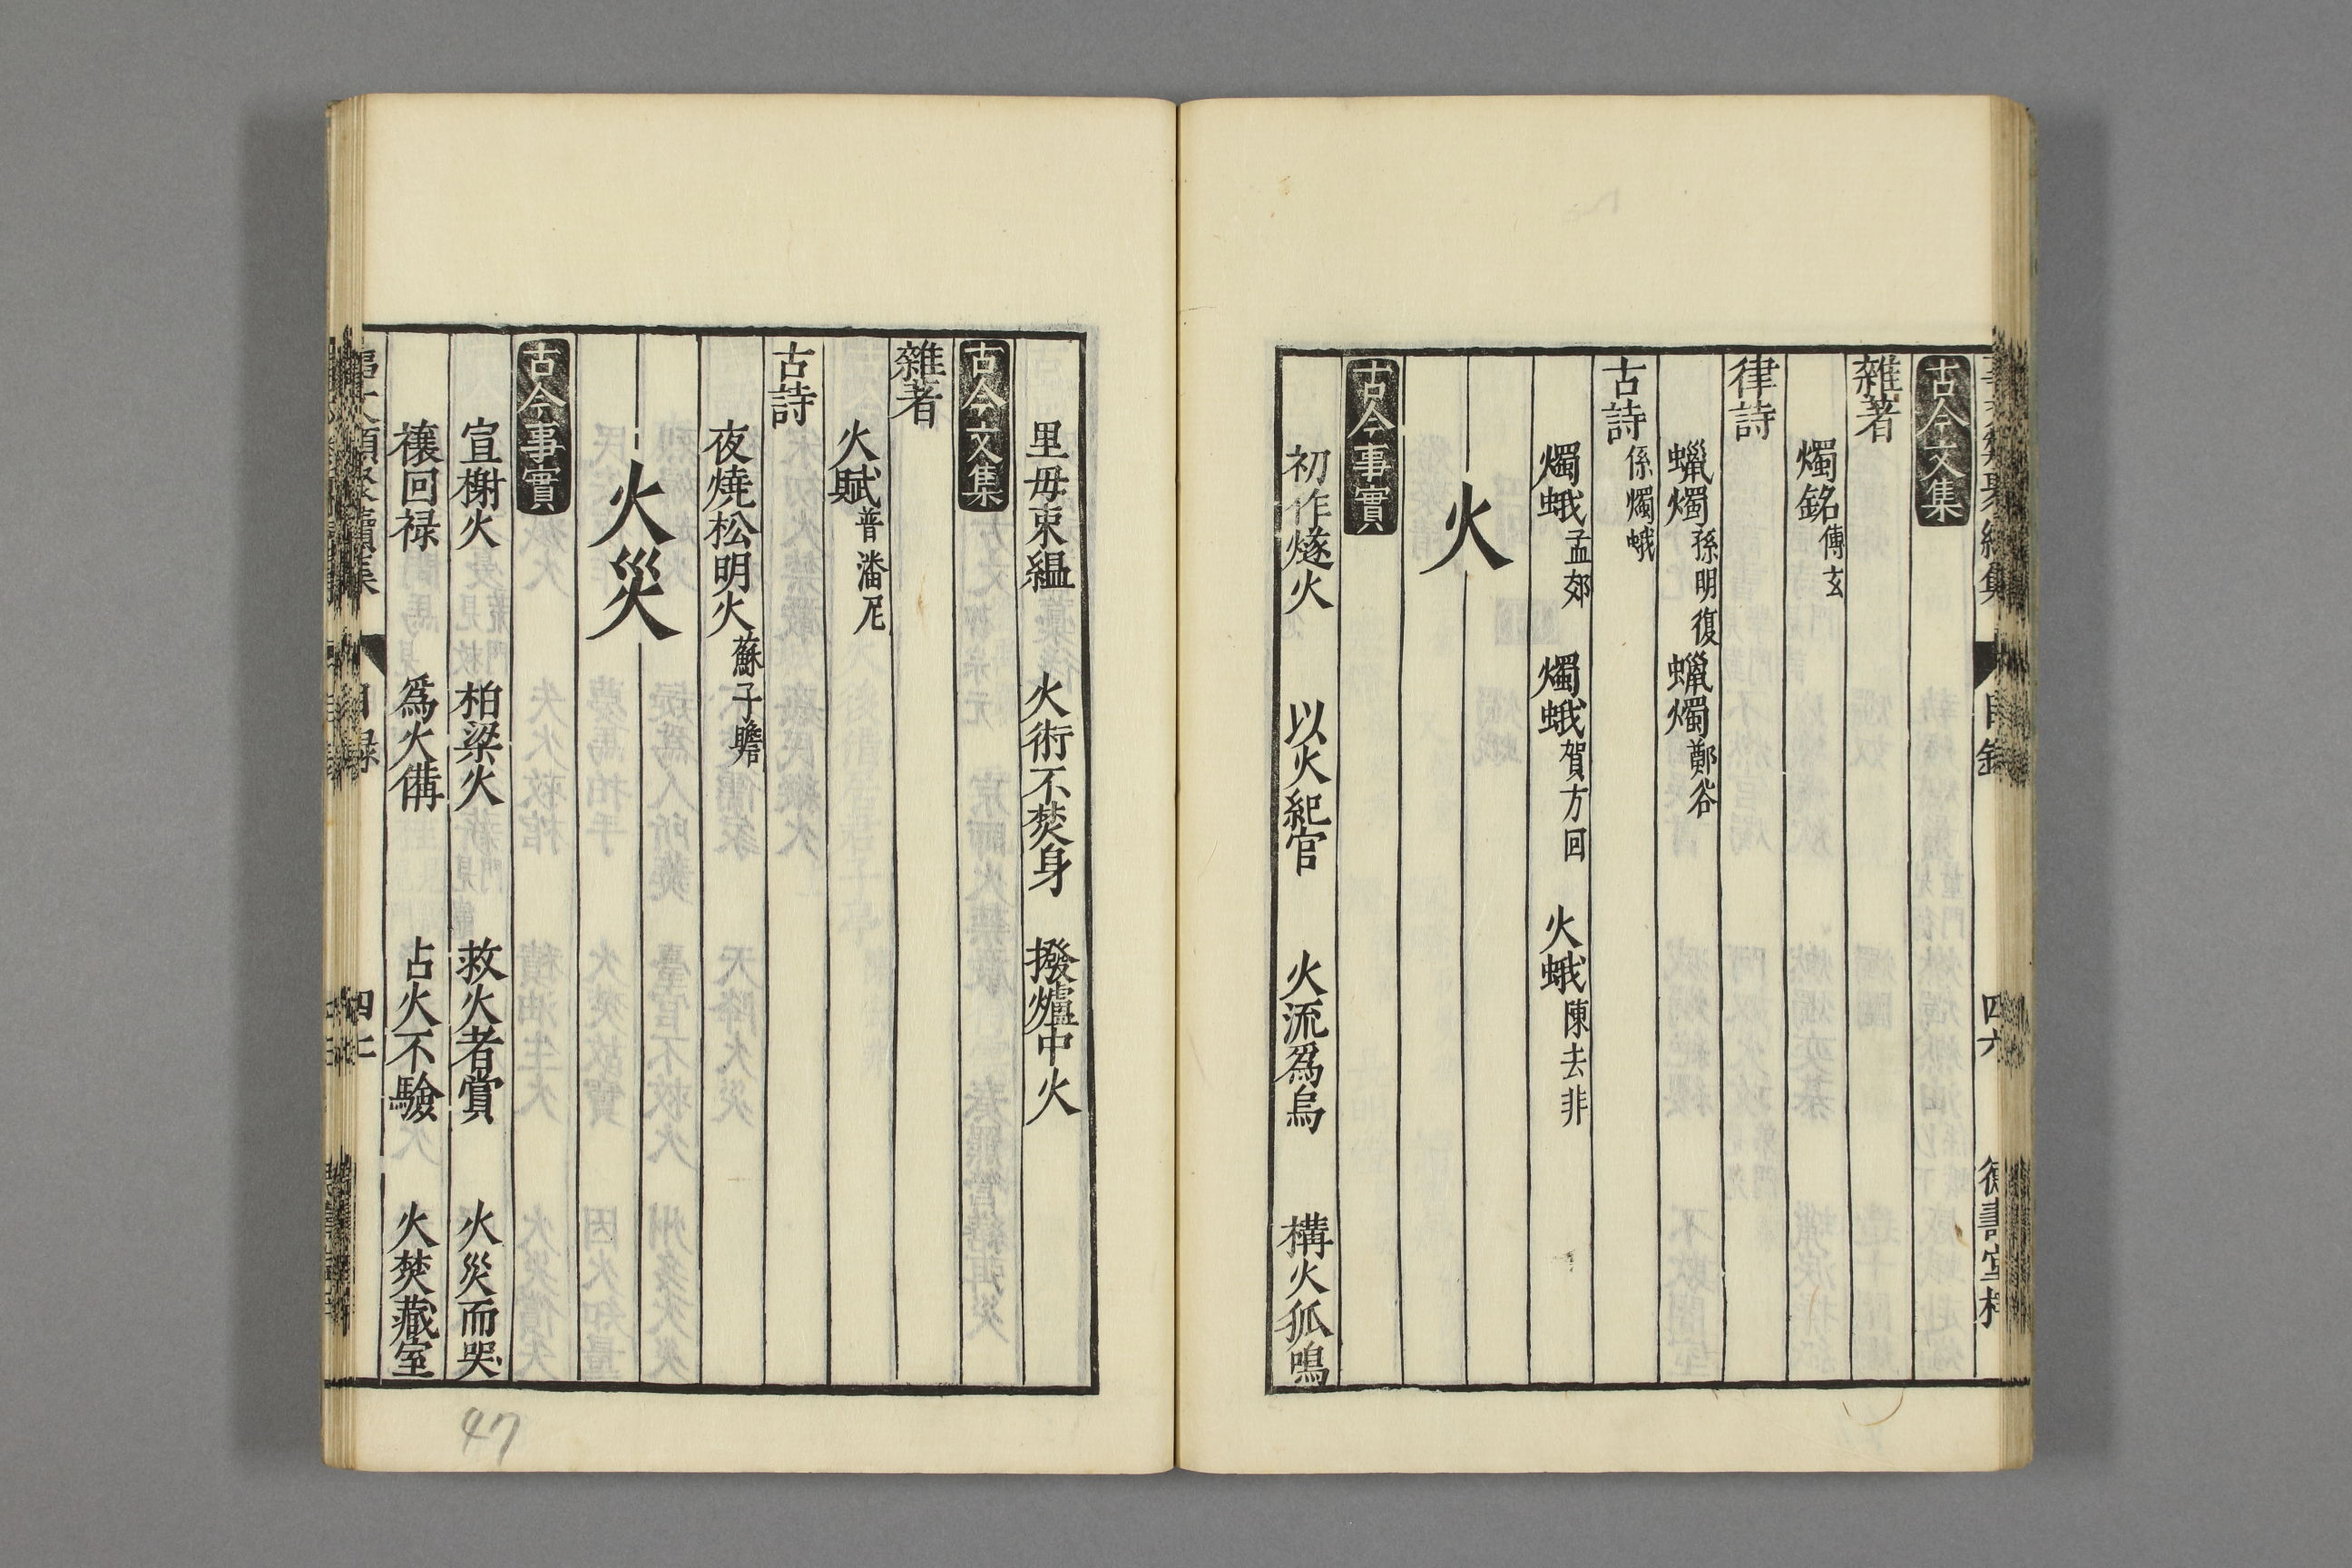 古今文集
雜著
燭銘傅玄
律詩
蠟燭孫明復 蠟燭鄭谷
古詩係燭蛾
燭蛾孟郊 燭蛾賀方回 火蛾陳去非
火
古今事實
初作燧火 以火紀官 火流爲烏 構火狐鳴
目錄 四六
里毋束緼 火術不焚身 撥爐中火
古今文集
雜著
火賦晉潘尼
古詩
夜燒松明火蘇子瞻
火災
古今事實
宣榭火 柏梁火 救火者賞 火災而哭
禳回禄 爲火備 占火不驗 火焚藏室
目録
47